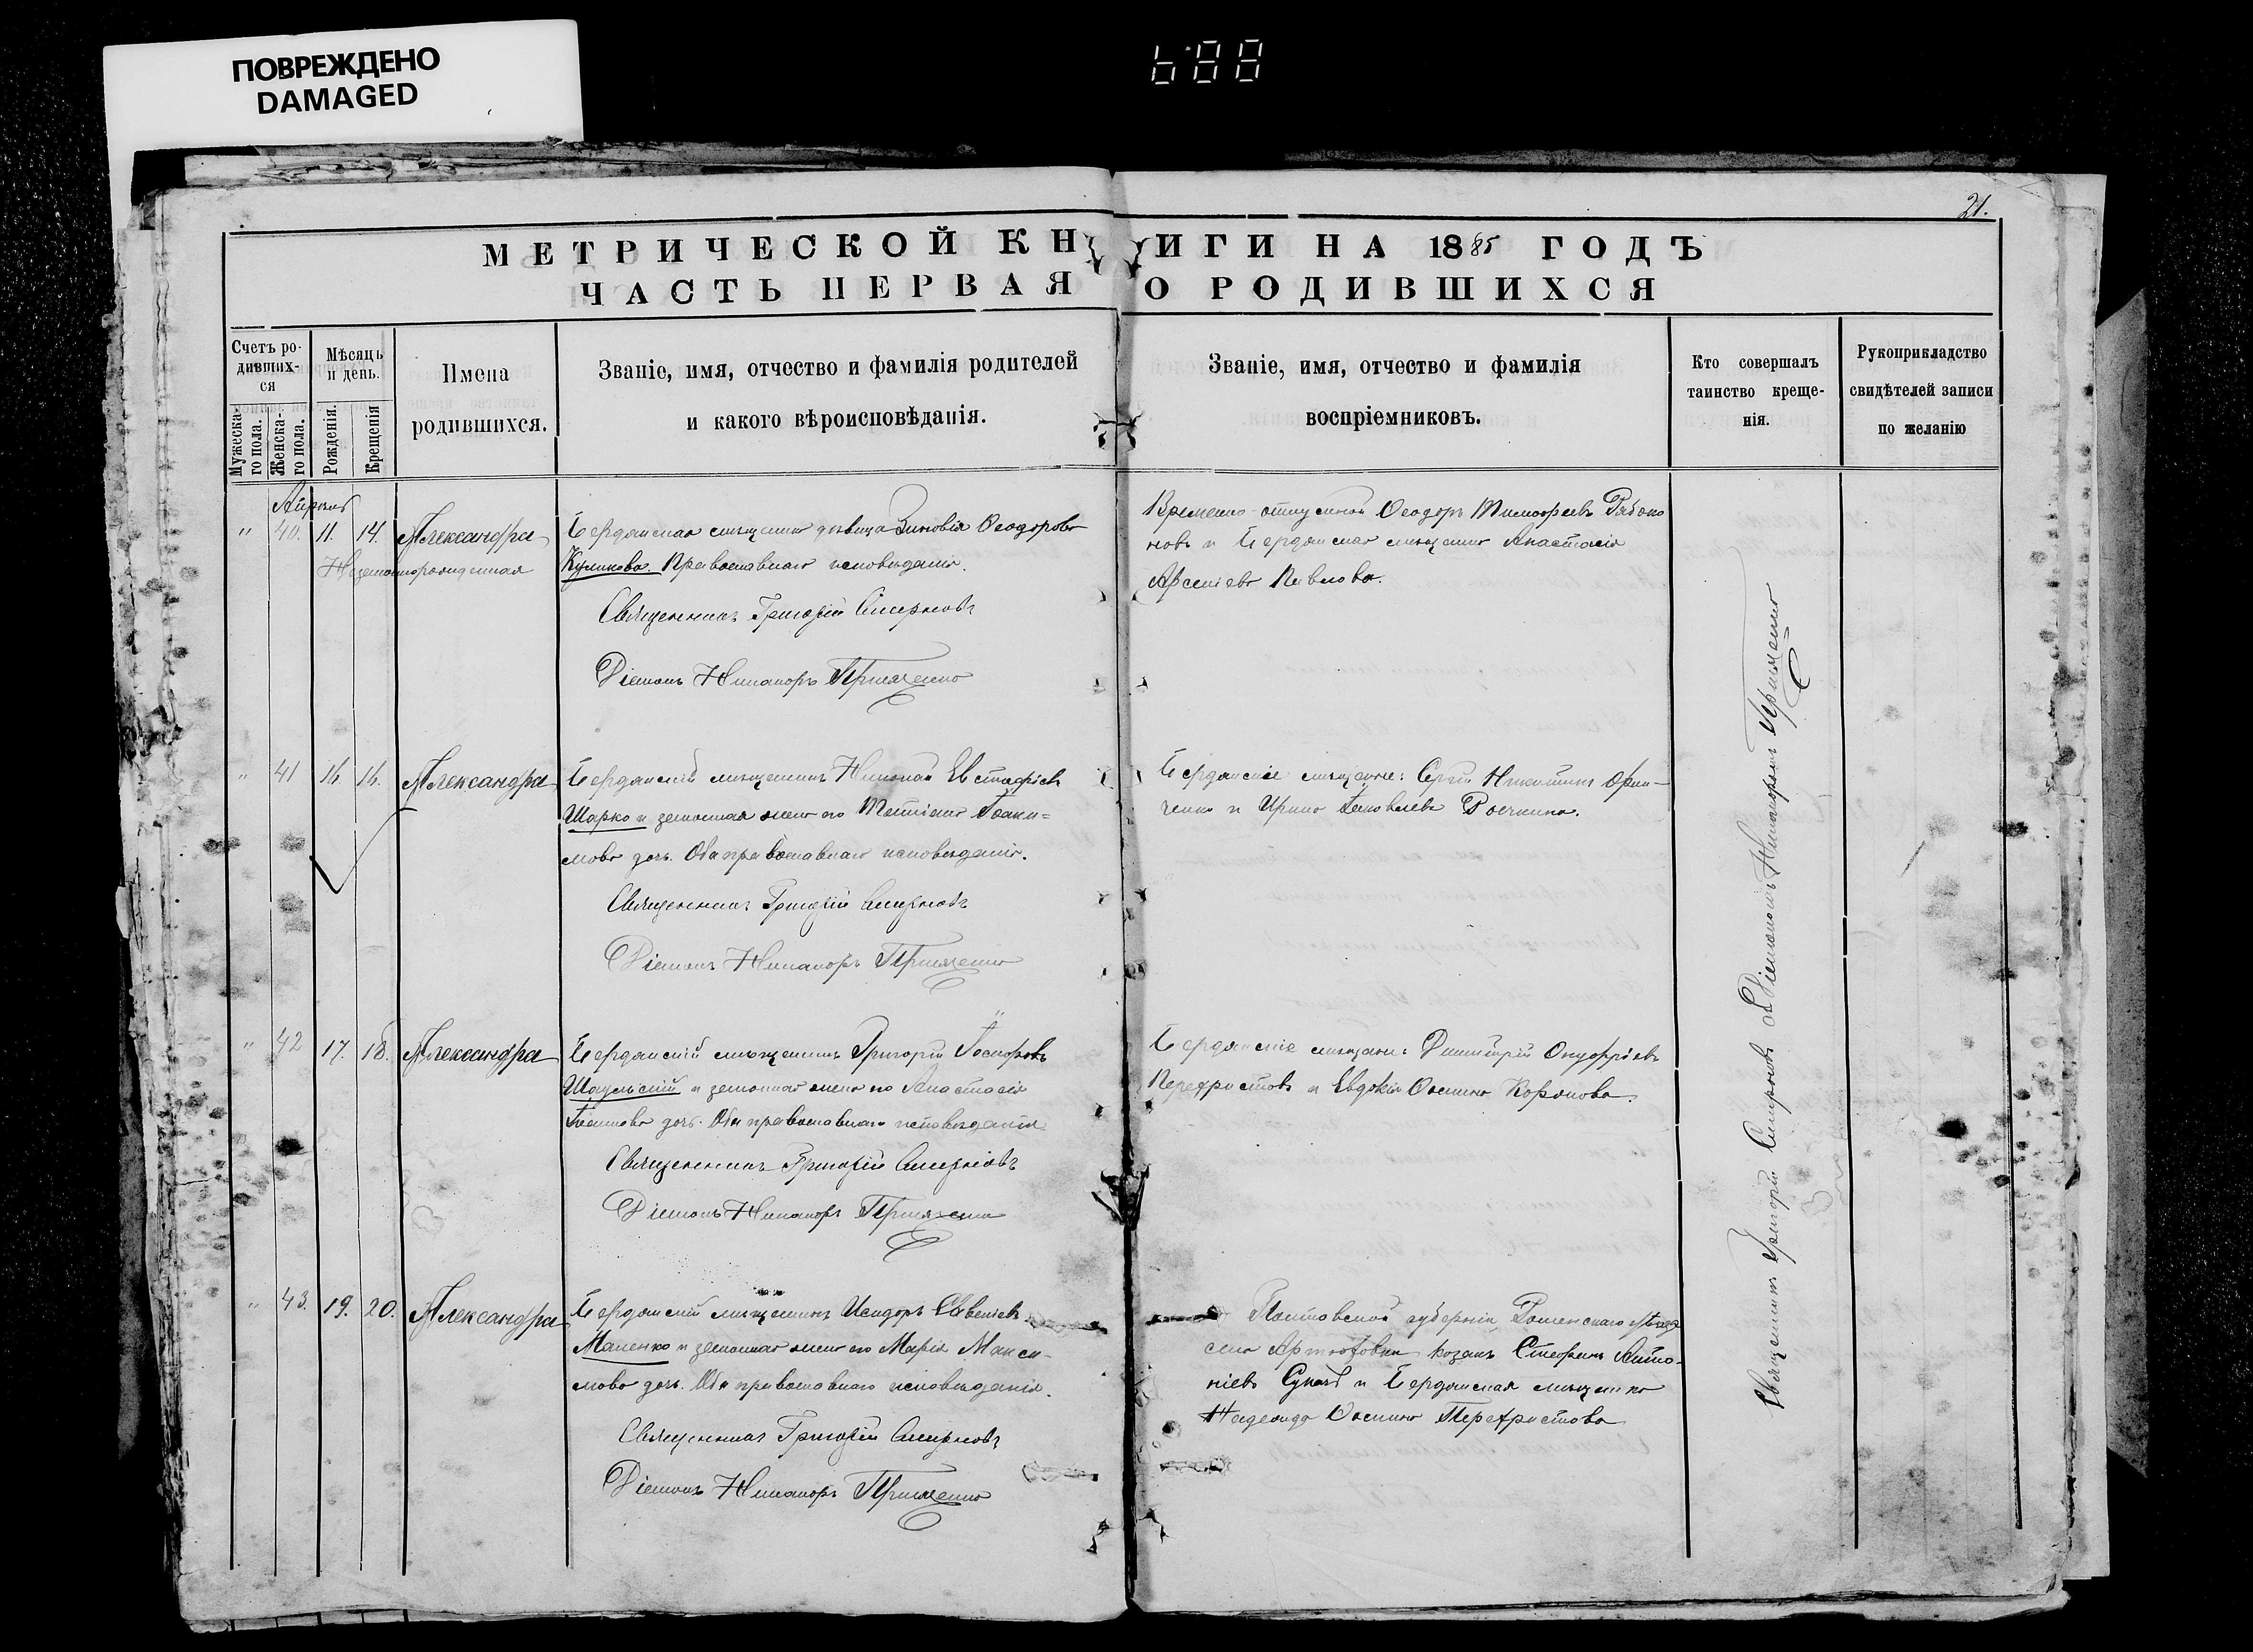 ПОВРЕЖДЕНО
DAMAGED
21.
МЕТРИЧЕСКОЙ КНИГИ НА 1885 ГОДЪ
ЧАСТЬ ПЕРВАЯ О РОДИВШИХСЯ
Счетъ ро-
дивших-
ся
Мужеска-
го пола.
Женска-
го пола.
Мѣсяцъ
и день.
Рожденія.
Крещенія
Имена
родившихся.
Званіе, имя, отчество и фамилія родителей
и какого вѣроисповѣданія.
Званіе, имя, отчество и фамилія
воспріемниковъ.
Кто совершалъ
таинство креще-
нія.
Рукоприкладство
свидѣтелей записи
по желанію
Апрѣль
" 40. 11. 14. Александра
Незаконнорожденная
Бердянская мѣщанка дѣвица Зиновія Ѳеодорова
Куликова. Православнаго исповѣданія.
Священникъ Григорій Смирновъ
Діаконъ Никаноръ
Временно-отпускной Ѳеодоръ Тимоѳеевъ Рябоко
новъ и Бердянская мѣщанка Анастасія
Арсеніева Павлова.
" 41 16. 16. Александра
Бердянскій мѣщанинъ Николай Евстафіевъ
Шарко и законная жена его Татіана Іоаки-
мова дочь. Оба православнаго исповѣданія.
Священникъ Григорій Смирновъ
Діаконъ Никаноръ
Бердянскіе мѣщане: Сергій Никитинъ
и Ирина Яковлева
" 42 17. 18. Александра
Бердянскій мѣщанинъ Григорій
и законная жена его Анастасія
дочь. Оба православнаго исповѣданія.
Священникъ Григорій Смирновъ
Діаконъ Никаноръ
Бердянскіе мѣщане: Димитрій Онуфріевъ
Перехристовъ и Евдокія Осипова
" 43. 19. 20. Александра
Бердянскій мѣщанинъ Исидоръ
Маленко и законная жена его Марія Макси-
мова дочь. Оба православнаго исповѣданія.
Священникъ Григорій Смирновъ
Діаконъ Никаноръ
Полтавской губерніи, Роменскаго уѣзда
села Артюховки козакъ Стефанъ Анто-
ніевъ и Бердянская мѣщанка
Надежда Осипова Перехристова
Священникъ Григорій Смирновъ съ Діакономъ Никаноромъ